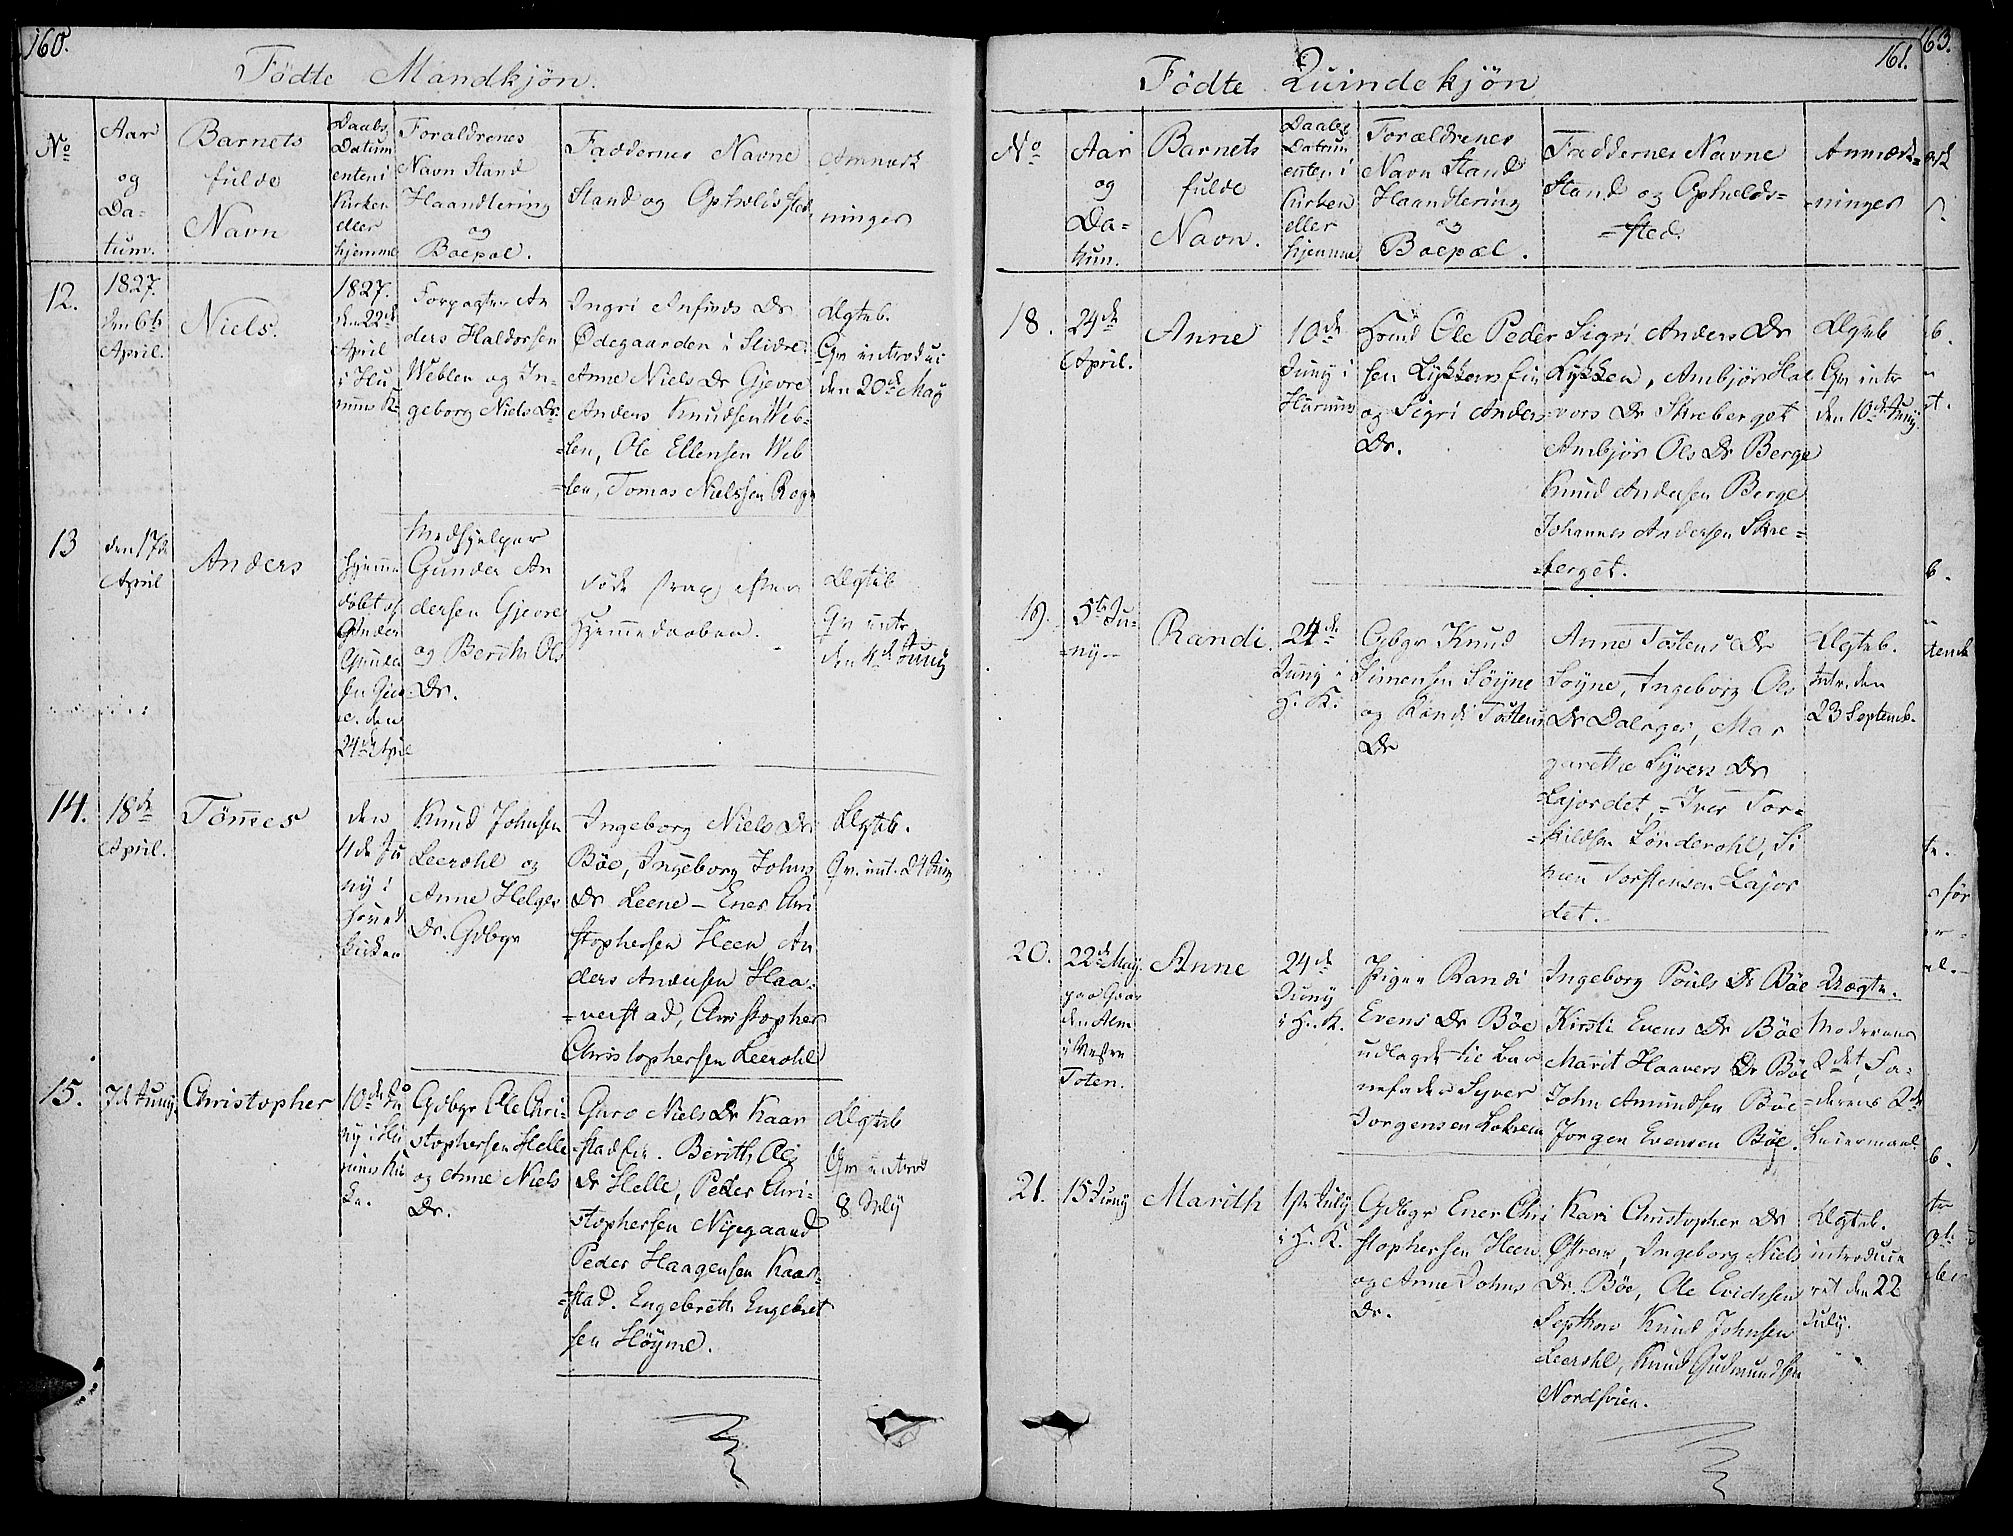 160.
Födte Mandkjön.
No
Aar
og
Da-
tum.
Barnets
fulde
Navn
Daabs
Datum
enten i
Kirken
eller
hjemme
Foraldrenes
Navn Stand
Haandtering
og
Boepæl.
Faddernes Navne
Stand og Opholdssted
Anmærk
ninger
12.
1827.
den 6te
April.
Niels.
1827.
den 22de
April
i Hu
rums K.
Forpagter An
ders Haldorsen
Weblen og In-
geborg Niels Dr.
Ingri Anfinds Dr.
Ødegaarden i Slidre
Anne Niels Dr Gjevre
Anders Knudsen Web-
len, Ole Ellensen Web
-len, Tomas Nielssen Rogn
Ægteb.
Qv introduc
den 20de May
13
den 17de
April
Anders
hjemme
döbt af
Gunder
Gunder
sen Gjev
re. den
24de April
Medhjelper
Gunder An
dersen Gjevre
og Berith Ols
Dr.
döde strax efter
Hjemmedaaben.
Ægteb
Qv intr
den 4de Juny
14.
18de
April.
Tömes
den
4de Ju
ny i
Hoved
kirken
Knud Johnsen
Leerohl og
Anne Helges
Dr. Gdbgr
Ingeborg Niels Dr.
Böe, Ingeborg Johns
Dr Leene - Ener Chri
stophersen Heen An
ders Andersen Haa-
-verstad, Christopher
Christophersen Leerohl
Ægteb.
Qv. int. 24 Juny
15.
7de Juny.
Christopher
10de Ju
ny i Hu
rums Kir
ke.
Gdbgr Ole Chri-
stophersen Helle
og Anne Niels
Dr.
Guro Niels Dr Kaar
-stad Eie. Berith Ols
Dr Helle, Peder Chri-
stophersen Nyegaard
Peder Haagensen Kaar-
-stad. Engebreth Engebret
sen Höyme.
Ægteb
Qv introd
8 July
161.
Födte Quindekjön
No
Aar
og
Da-
tum.
Barnets
fulde
Navn.
Daabs
Datum
enten i
Kirken
eller
hjemme
Forældrenes
Navn Stand
Haandtering
og
Boepæl.
Faddernes Navne
Stand og Opholds-
-sted.
Anmærk-
-ninger
18.
24de
April.
Anne
10de
Juny i
Hurums
Huusmd Ole Peder
sen Lykkens Eie
og Sigri Anders
Dr.
Sigri Anders Dr
Lykken, Ambjör Hal
-vors Dr Skreberget
Ambjör Ols Dr Berge
Knud Andersen Berge
Johannes Andersen Skre-
-berget.
Ægteb
Qv intr
den 10de Juny
19.
5te Ju-
-ny -
Randi.
24de
Juny i
H. K.
Gbgr Knud
Simensen Söyne
og Randi Tostens
Dr
Anne Tostens Dr
Söyne, Ingeborg Ols
Dr Dalager, Mar
garethe Syvers Dr
Lajordet, - Iver Tor-
-kildsen Sönderohl, Si
men Torstensen Lajor
det.
Ægteb.
Intr. den
23 Septemb.
20.
22de May.
paa Gaar
den Alm
i Vestre
Toten.
Anne
24de
Juny
i H. K.
Pigen Randi
Evens Dr Böe
udlagde til Bar
nefader Syver
Jorgensen Lokrem
Ingeborg Pouls Dr Böe
Kirsti Evens Dr Böe
Marrit Haavers Dr Böe
John Amundsen Böe
Jorgen Evensen Böe.
Uægte.
Moderens
2det, Fa-
-derens 2det
Leiermaal
21.
15 Juny
Marith
1ste July
i H. K.
Gdbgr Ener Chri
stophersen Heen
og Anne Johns
Dr.
Kari Christopher Dr
Östrem, Ingeborg Niels
Dr. Böe, Ole Erichsen
Knud Johnsen
Leerohl, Knud Gudmundsen
Nordsvien.
Ægteb.
introduce
ret den 22
July.
163.